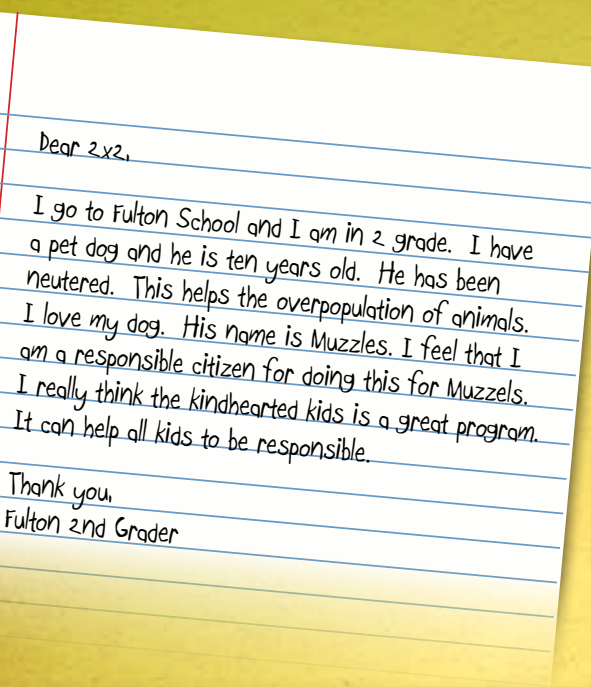 Dear 2x2,
I go to Fulton School and I am in 2 grade. I have
a pet dog and he is ten years old. He has been
neutered. This helps the overpopulation of animals.
I love my dog. His name is Muzzles. I feel that I
am a responsible citizen for doing this for Muzzels.
I really think the kindhearted kids is a great program.
It can help all kids to be responsible.
Thank you,
Fulton 2nd Grader